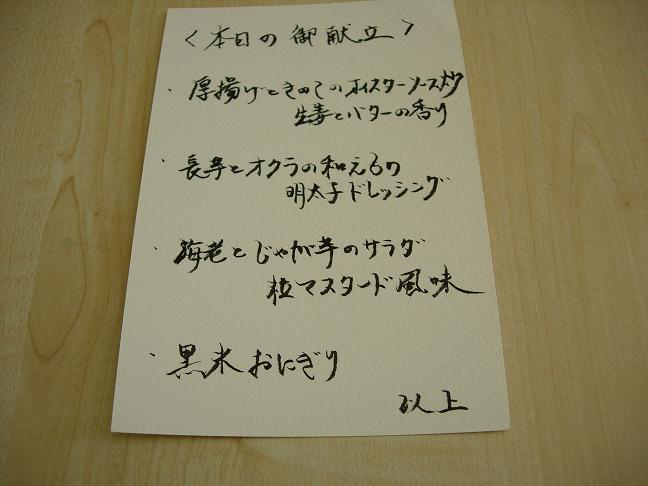 〈本日の御献立〉
・厚揚げときのこのオイスターソース炒
生姜とバターの香り
・長芋とオクラの和えもの
明太子ドレッシング
・海老とじゃが芋のサラダ
粒マスタード風味
・黒米おにぎり
以上